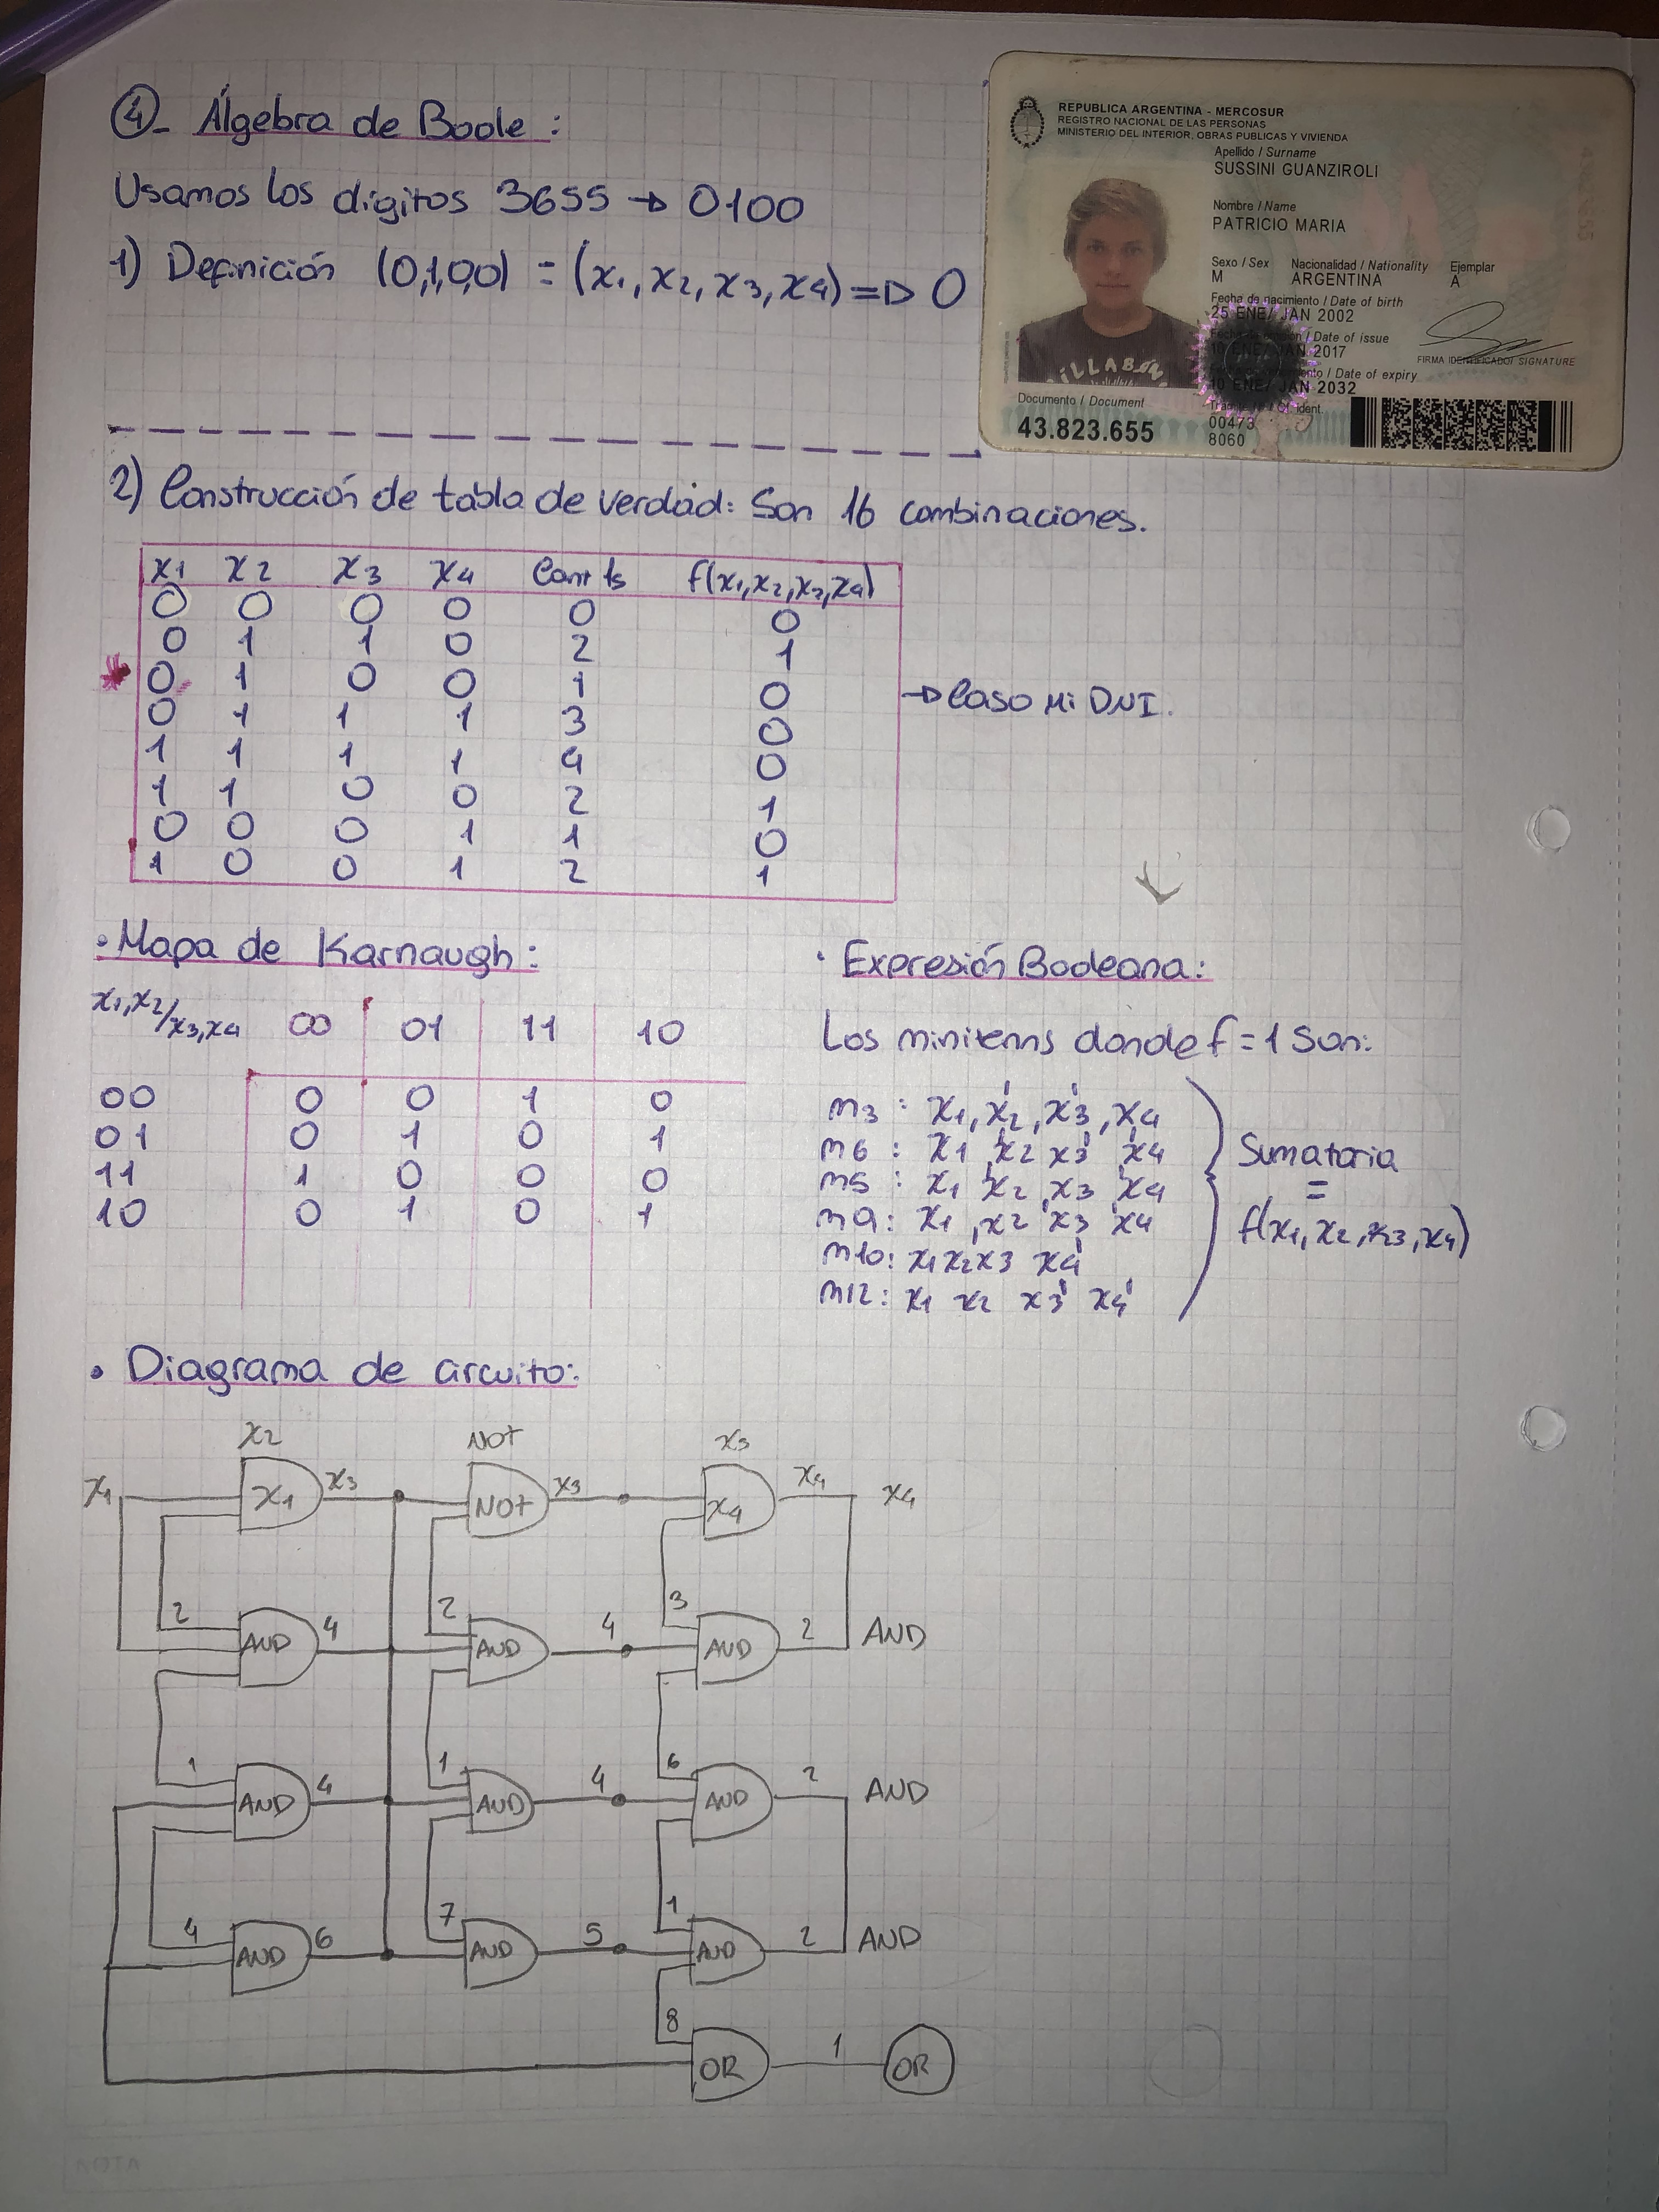 ④- Álgebra de Boole :
Usamos los dígitos 3655 → 0100
1) Definición (0,1,0,0) = (x1, x2, x3, x4) => 0
REPUBLICA ARGENTINA - MERCOSUR
REGISTRO NACIONAL DE LAS PERSONAS
MINISTERIO DEL INTERIOR, OBRAS PUBLICAS Y VIVIENDA
Apellido / Surname
SUSSINI GUANZIROLI
Nombre / Name
PATRICIO MARIA
Sexo / Sex Nacionalidad / Nationality Ejemplar
M ARGENTINA A
Fecha de nacimiento / Date of birth
25 ENE/ JAN 2002
/ Date of issue
10 ENE/ JAN 2017
FIRMA IDENTIFICADO/ SIGNATURE
/ Date of expiry
10 ENE/ JAN 2032
BILLABONG
Documento / Document
43.823.655
Of. Ident.
00473
8060
2) Construcción de tabla de verdad: Son 16 combinaciones.
x1 x2 x3 x4 Cant 1s f(x1,x2,x3,x4)
0 0 0 0 0 0
0 1 1 0 2 1
* 0 1 0 0 1 0 → Caso Mi DNI.
0 1 1 1 3 0
1 1 1 1 4 0
1 1 0 0 2 1
0 0 0 1 1 0
1 0 0 1 2 1
• Mapa de Karnaugh:
x1,x2/x3,x4 00 01 11 10
00 0 0 1 0
01 0 1 0 1
11 1 0 0 0
10 0 1 0 1
• Expresión Booleana:
Los minitems donde f=1 son:
m3 : x1, x2', x3', x4
m6 : x1 x2' x3' x4'
m5 : x1 x2' x3 x4'
m9 : x1, x2 x3' x4'
m10: x1 x2 x3 x4'
m12: x1 x2 x3' x4'
Sumatoria
=
f(x1, x2, x3, x4)
• Diagrama de circuito:
x2 NOT x3
x1 x1 x3 NOT x3 x4 x4 x4
2 AND 4 2 AND 4 3 AND 2 AND
1 AND 4 1 AND 4 6 AND 2 AND
4 AND 6 7 AND 5 1 AND 2 AND
8 OR 1 OR
NOTA